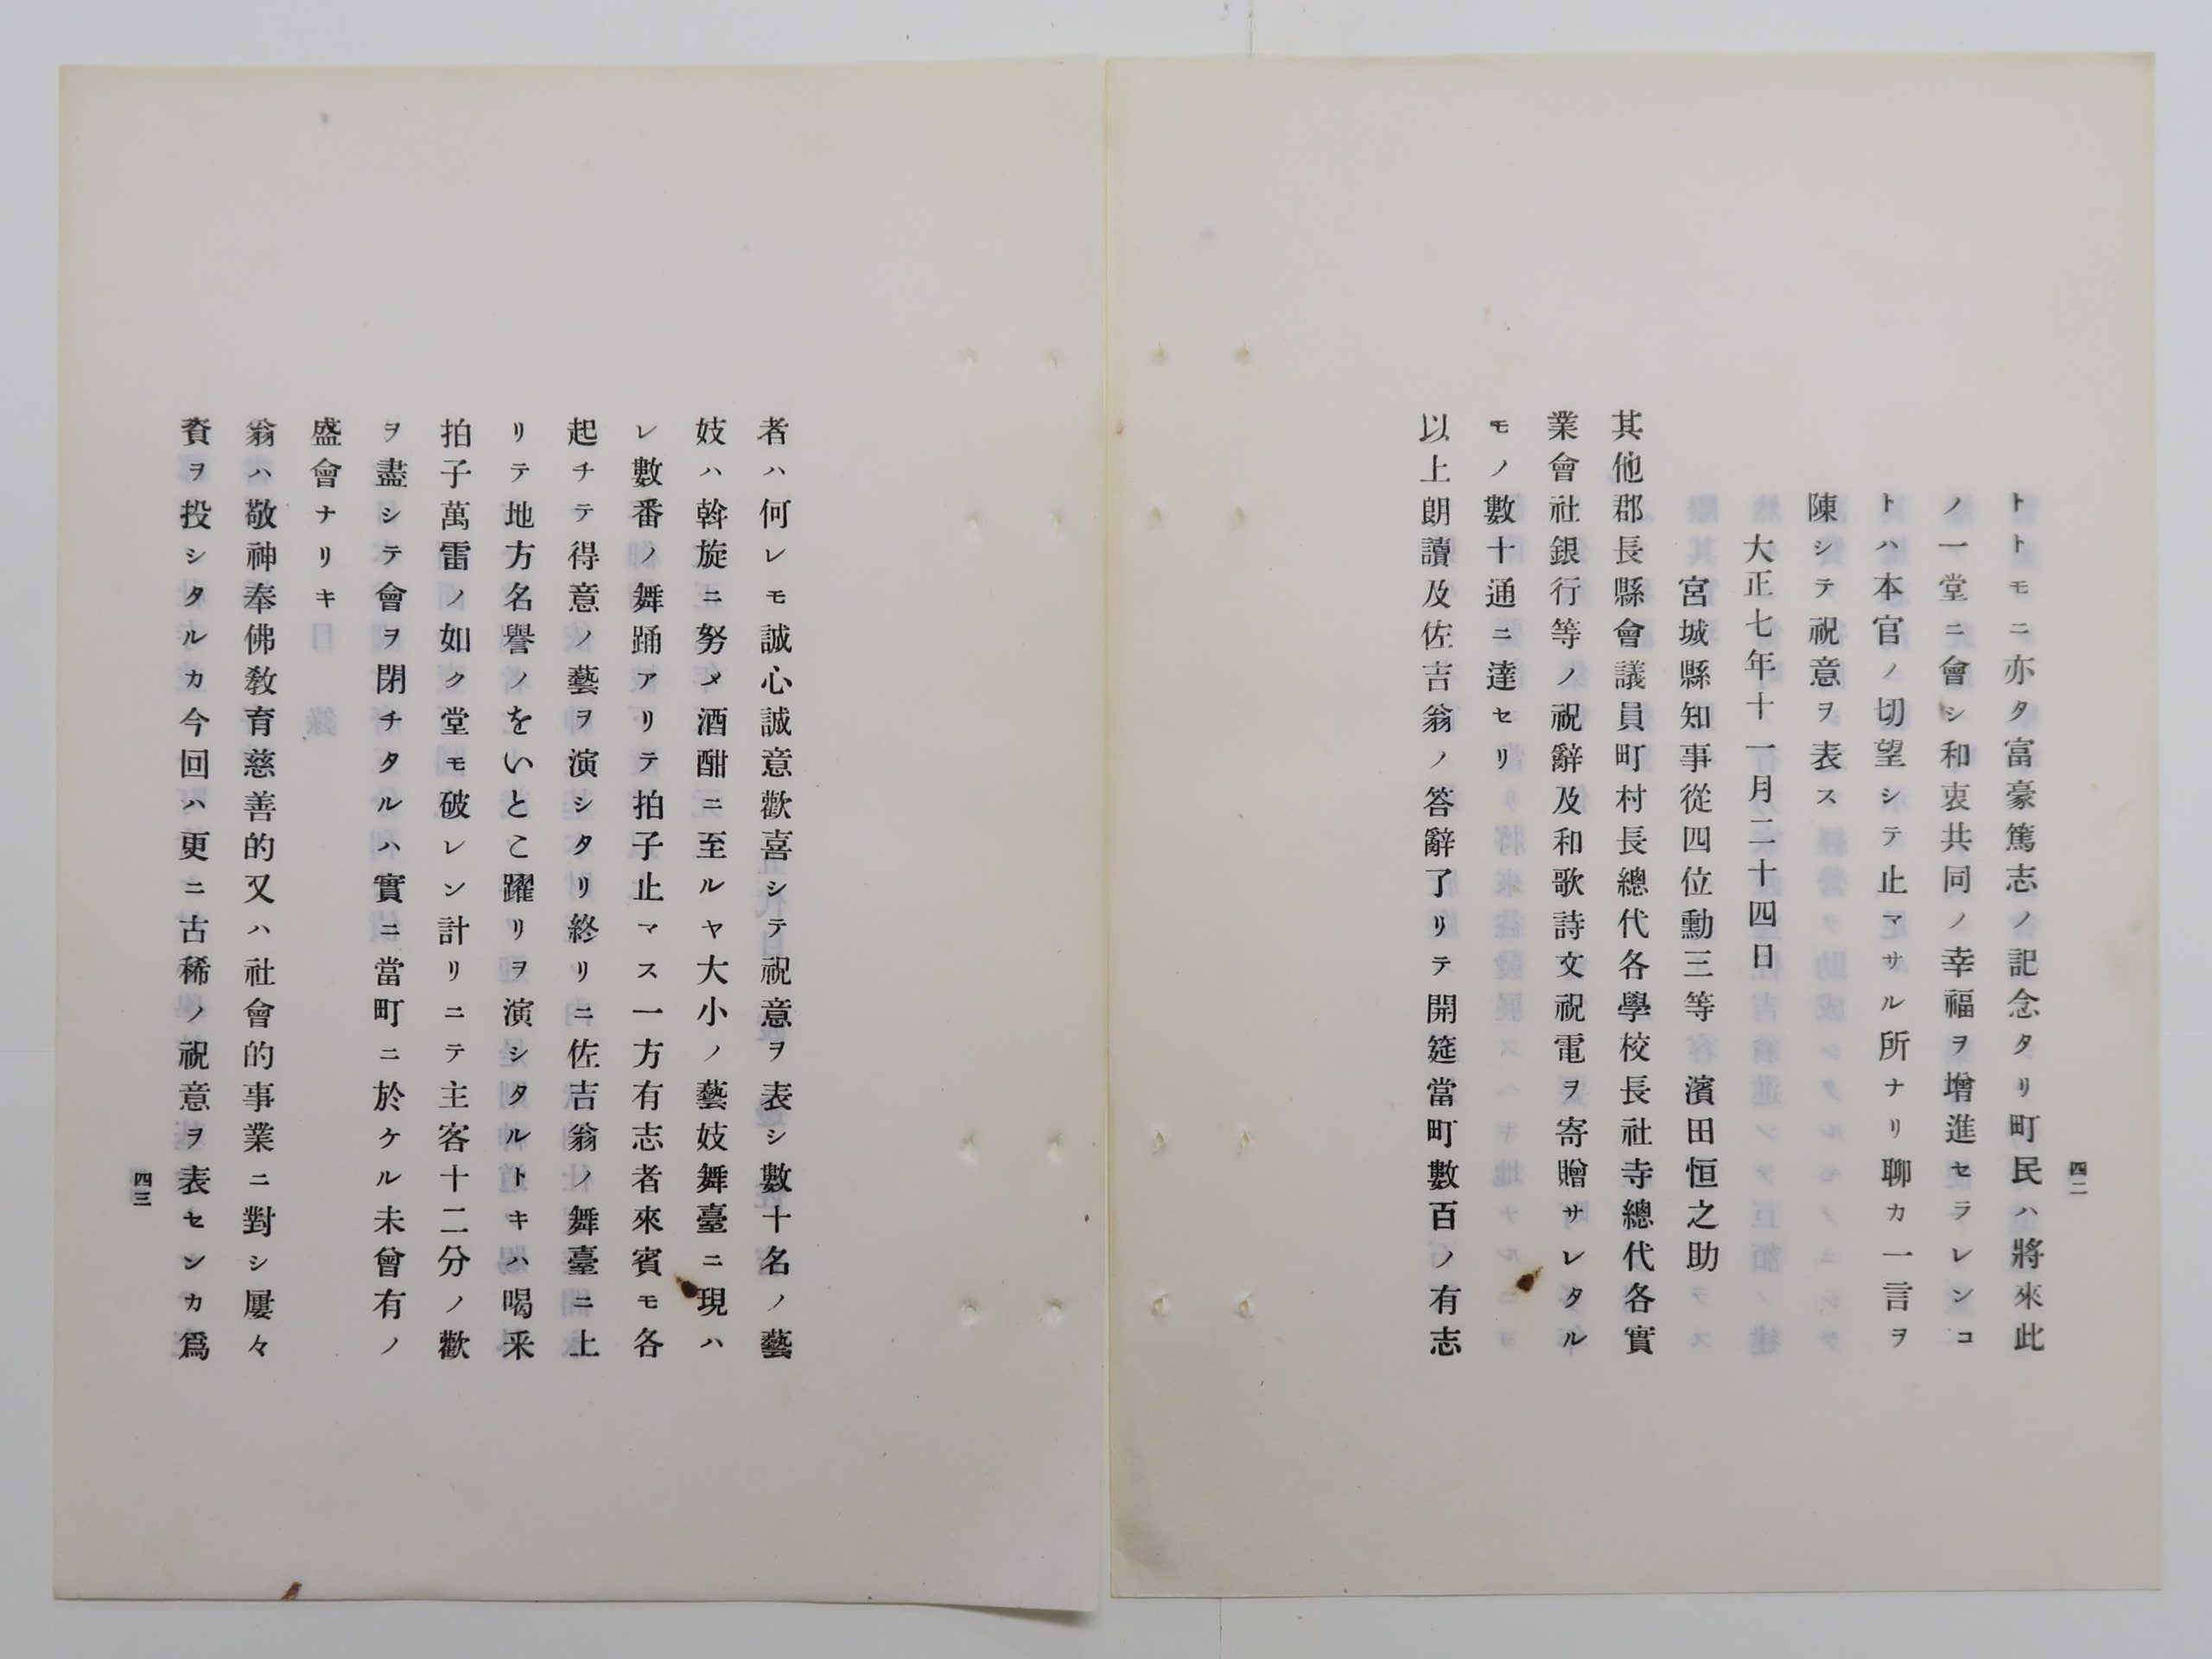 四二
トトモニ亦タ富豪篤志ノ記念タリ町民ハ將來此
ノ一堂ニ會シ和衷共同ノ幸福ヲ增進セラレンコ
トハ本官ノ切望シテ止マサル所ナリ聊カ一言ヲ
陳シテ祝意ヲ表ス
大正七年十一月二十四日
宮城縣知事從四位勳三等濱田恒之助
其他郡長縣會議員町村長總代各學校長社寺總代各實
業會社銀行等ノ祝辭及和歌詩文祝電ヲ寄贈サレタル
モノ數十通ニ達セリ
以上朗讀及佐吉翁ノ答辭了リテ開筵當町數百ノ有志
者ハ何レモ誠心誠意歡喜シテ祝意ヲ表シ數十名ノ藝
妓ハ斡旋ニ努メ酒酣ニ至ルヤ大小ノ藝妓舞臺ニ現ハ
レ數番ノ舞踊アリテ拍子止マス一方有志者來賓モ各
起チテ得意ノ藝ヲ演シタリ終リニ佐吉翁ノ舞臺ニ上
リテ地方名譽ノをいとこ躍リヲ演シタルトキハ喝采
拍子萬雷ノ如ク堂モ破レン計リニテ主客十二分ノ歡
ヲ盡シテ會ヲ閉チタルハ實ニ當町ニ於ケル未曾有ノ
盛會ナリキ
翁ハ敬神奉佛敎育慈善的又ハ社會的事業ニ對シ屢々
資ヲ投シタルカ今回ハ更ニ古稀ノ祝意ヲ表センカ爲
四三